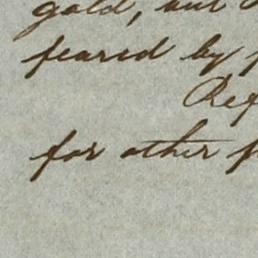 gold, but
feared by
Ref
for other